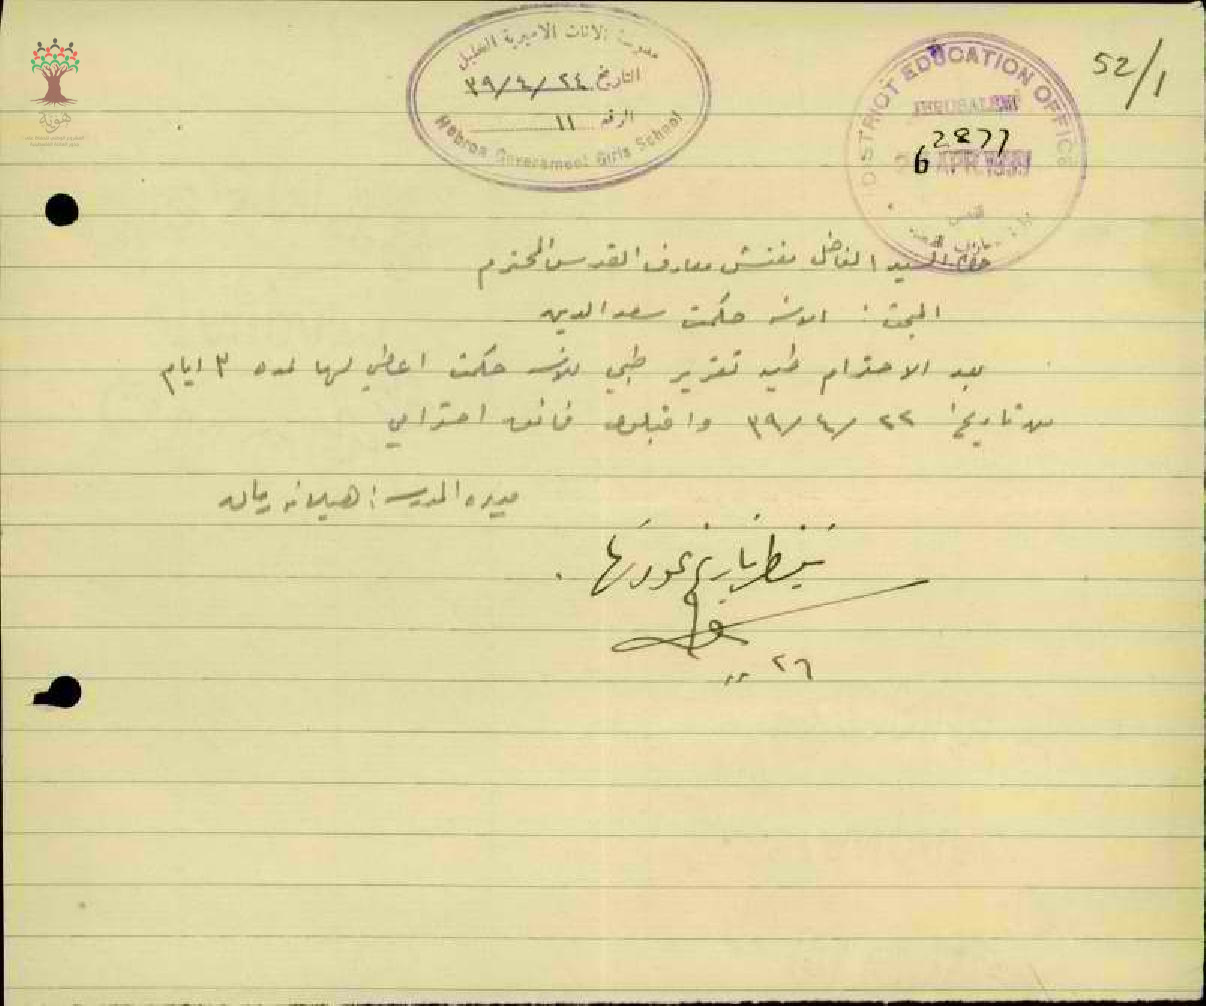 مدرسة الاناث الاميرية الخليل
التاريخ ٢٤/٤/٣٩
الرقم ١١
Hebron Government Girls School
DISTRICT EDUCATION OFFICE
JERUSALEM
2877
6
APR 1939
القدس
52/1
هوية
السيد الفاضل مفتش معارف القدس المحترم
البحث : الانسه حكمت سعد الدين
بعد الاحترام طيه تقرير طبي للانسه حكمت اعطي لها لمده ٣ ايام
من تاريخ ٢٢/٤/٣٩ واقبلوا فائق احترامي
مديره المدرسه : هيلانه
ينتظر تاريخ عودتها .
٢٦